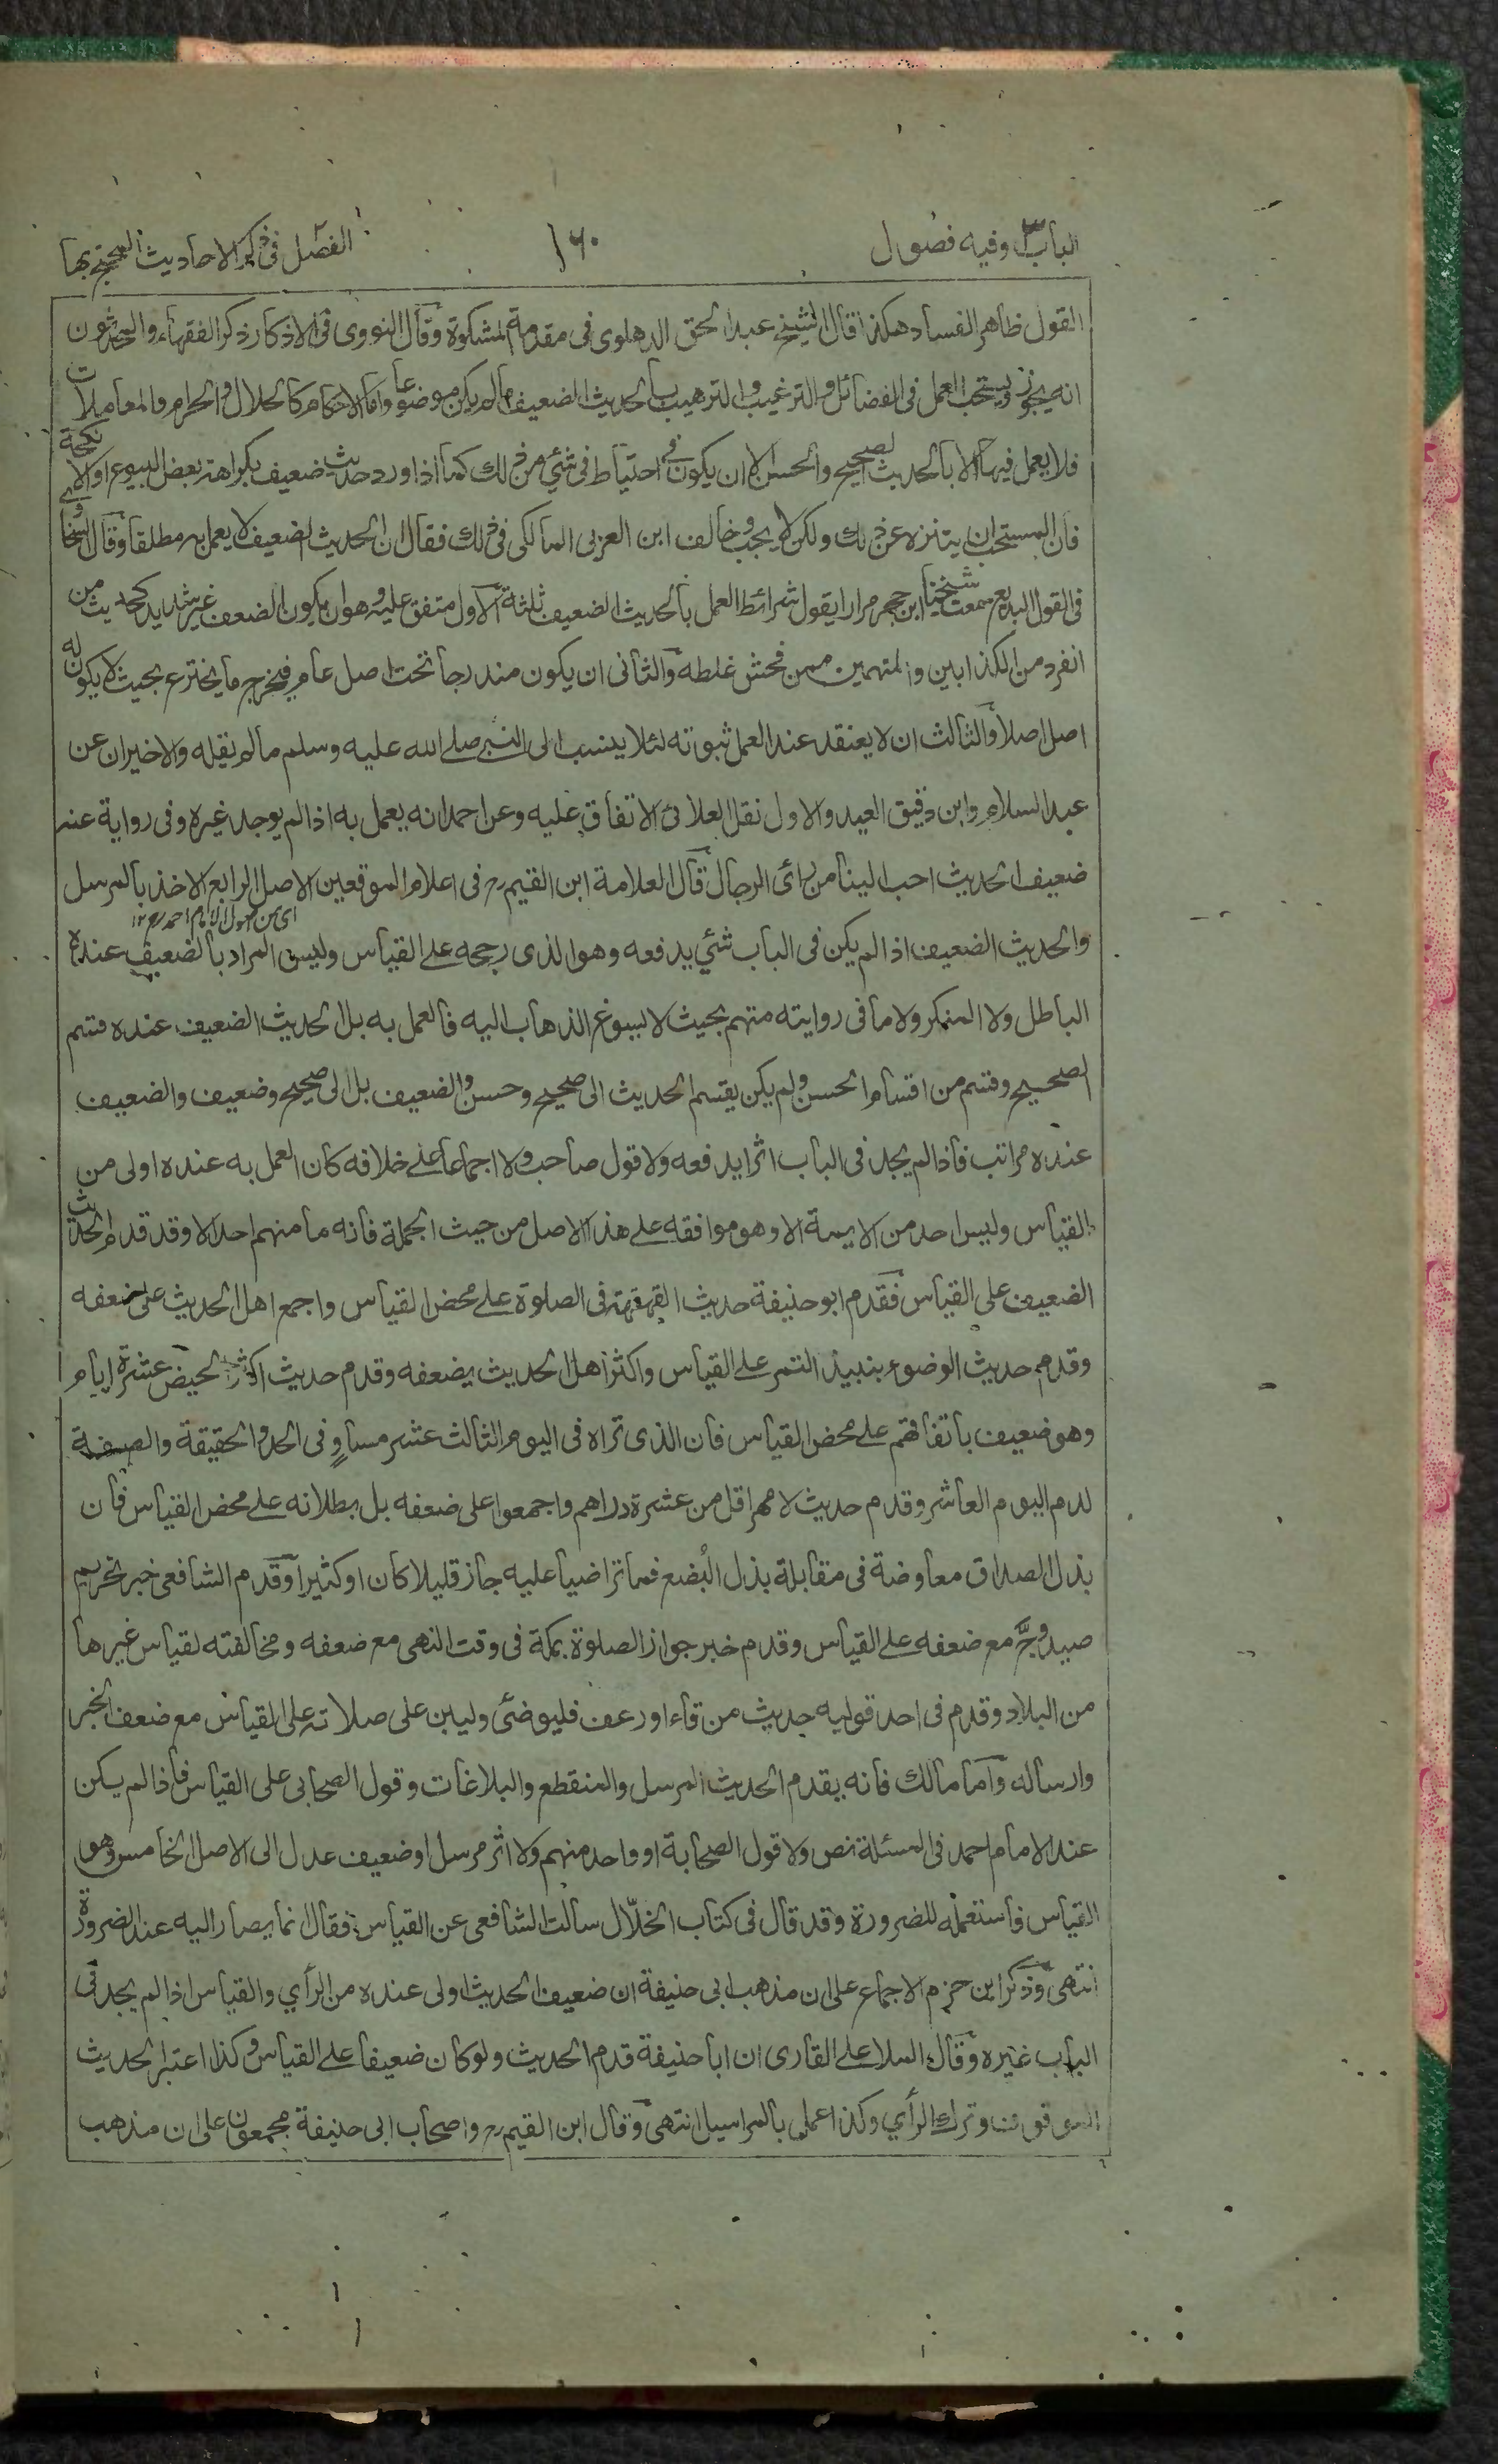 الباب٣ وفيه فصول
١٦٠
الفصل فى ذكر الاحاديث المحتج بها
القول ظاهر الفساد هكذا قال الشيخ عبد الحق الدهلوى فى مقدمة المشكوة وقال النووى فى الاذكار ذكر الفقهاء والمحدثون
انه يجوز ويستحب العمل فى الفضائل والترغيب والترهيب بالحديث الضعيف ما لم يكن موضوعا واما الاحكام كالحلال والحرام والمعاملات
فلا يعمل فيها الا بالحديث الصحيح والحسن الا ان يكون فى احتياط فى شئي من ذلك كما اذا ورد حديث ضعيف بكراهة بعض البيوع او الانكحة
فان المستحب ان يتنزه عن ذلك ولكن لا يجب وخالف ابن العربى المالكى فى ذلك فقال ان الحديث الضعيف لا يعمل به مطلقا وقال السخاوى
فى القول البديع سمعت شيخنا ابن حجر مرارا يقول شرائط العمل بالحديث الضعيف ثلثة الاول متفق عليه وهو ان يكون الضعف غير شديد كحديث من
انفرد من الكذابين والمتهمين ممن فحش غلطه والثانى ان يكون مندرجا تحت اصل عام فيخرج ما يخترع بحيث لا يكون له
اصل اصلا والثالث ان لا يعتقد عند العمل ثبوته لئلا ينسب الى النبى صلى الله عليه وسلم ما لم يقله والاخيران عن
عبد السلام وابن دقيق العيد والاول نقل العلائى الاتفاق عليه وعن احمد انه يعمل به اذا لم يوجد غيره وفى رواية عنه
ضعيف الحديث احب الينا من رائ الرجال قال العلامة ابن القيم رح فى اعلام الموقعين الاصل الرابع الاخذ بالمرسل
اى من اصول الامام احمد رح ١٢
والحديث الضعيف اذا لم يكن فى الباب شئي يدفعه وهو الذى رجحه على القياس وليس المراد بالضعيف عنده
الباطل ولا المنكر ولا ما فى روايته متهم بحيث لا يسوغ الذهاب اليه فالعمل به بل الحديث الضعيف عنده قسيم
الصحيح وقسم من اقسام الحسن ولم يكن يقسم الحديث الى صحيح وحسن والضعيف بل الى صحيح وضعيف والضعيف
عنده مراتب فاذا لم يجد فى الباب اثرا يدفعه ولا قول صاحب ولا اجماعا على خلافه كان العمل به عنده اولى من
القياس وليس احد من الايمة الا وهو موافقه على هذا الاصل من حيث الجملة فانه ما منهم احد الا وقد قدم الحديث
الضعيف على القياس فقدم ابو حنيفة حديث القهقهة فى الصلوة على محض القياس واجمع اهل الحديث على ضعفه
وقدم حديث الوضوء بنبيذ التمر على القياس واكثر اهل الحديث يضعفه وقدم حديث اكثر الحيض عشرة ايام
وهو ضعيف باتفاقهم على محض القياس فان الذى تراه فى اليوم الثالث عشر مساوٍ فى الحد والحقيقة والصفة
لدم اليوم العاشر وقدم حديث لا مهر اقل من عشرة دراهم واجمعوا على ضعفه بل بطلانه على محض القياس فان
بذل الصداق معاوضة فى مقابلة بذل البُضع فما تراضيا عليه جاز قليلا كان او كثيرا وقدم الشافعى خبر تحريم
صيد وجّ مع ضعفه على القياس وقدم خبر جواز الصلوة بمكة فى وقت النهى مع ضعفه ومخالفته لقياس غيرها
من البلاد وقدم فى احد قوليه حديث من قاء او رعف فليوضئ وليبن على صلاته على القياس مع ضعف الخبر
وارساله واما مالك فانه يقدم الحديث المرسل والمنقطع والبلاغات وقول الصحابى على القياس فاذا لم يكن
عند الامام احمد فى المسئلة نص ولا قول الصحابة او واحد منهم ولا اثر مرسل او ضعيف عدل الى الاصل الخامس وهو
القياس فاستعمله للضرورة وقد قال فى كتاب الخلّال سألت الشافعى عن القياس فقال انما يصار اليه عند الضرورة
انتهى وذكر ابن حزم الاجماع على ان مذهب ابى حنيفة ان ضعيف الحديث اولى عنده من الرأي والقياس اذا لم يجد فى
الباب غيره وقال الملا على القارى ان ابا حنيفة قدم الحديث ولو كان ضعيفا على القياس وكذا اعتبر الحديث
الموقوف وترك الرأي وكذا عمل بالمراسيل انتهى وقال ابن القيم رح واصحاب ابى حنيفة مجمعون على ان مذهب